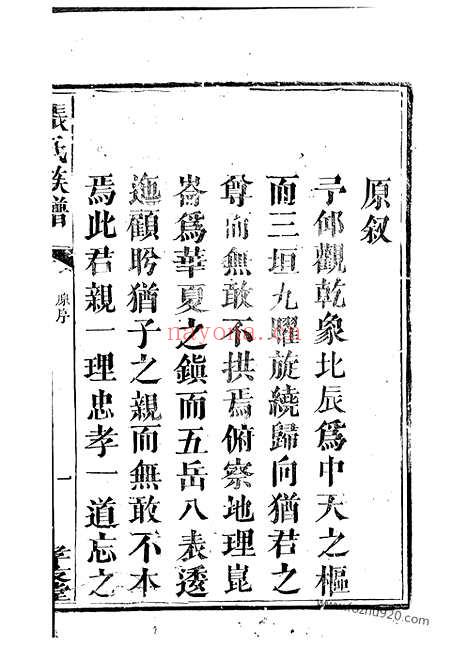 原叙
予仰觀乾象北辰爲中天之樞
而三垣九曜旋繞歸向猶君之
尊而無敢不拱焉俯察地理崑
崙爲華夏之鎭而五岳八表透
迤顧盻猶子之親而無敢不本
焉此君親一理忠孝一道忘之
張氏族譜
原序
一
孝友堂
nayona.cn
www.fozhu920.com